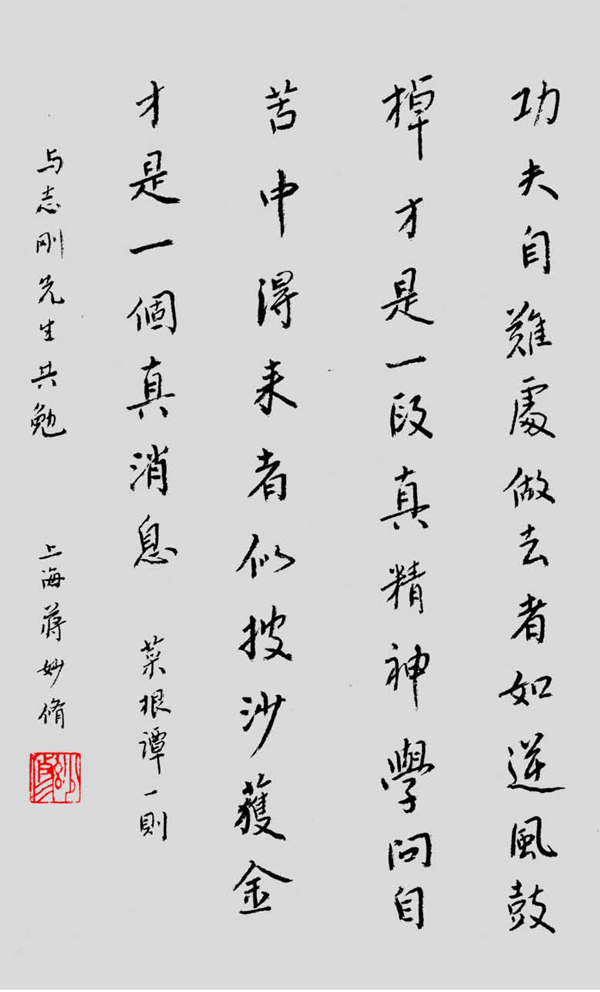 功夫自難處做去者如逆風鼓
棹才是一段真精神學問自
苦中得来者似披沙獲金
才是一個真消息 菜根譚一則
与志刚先生共勉 上海蒋妙脩